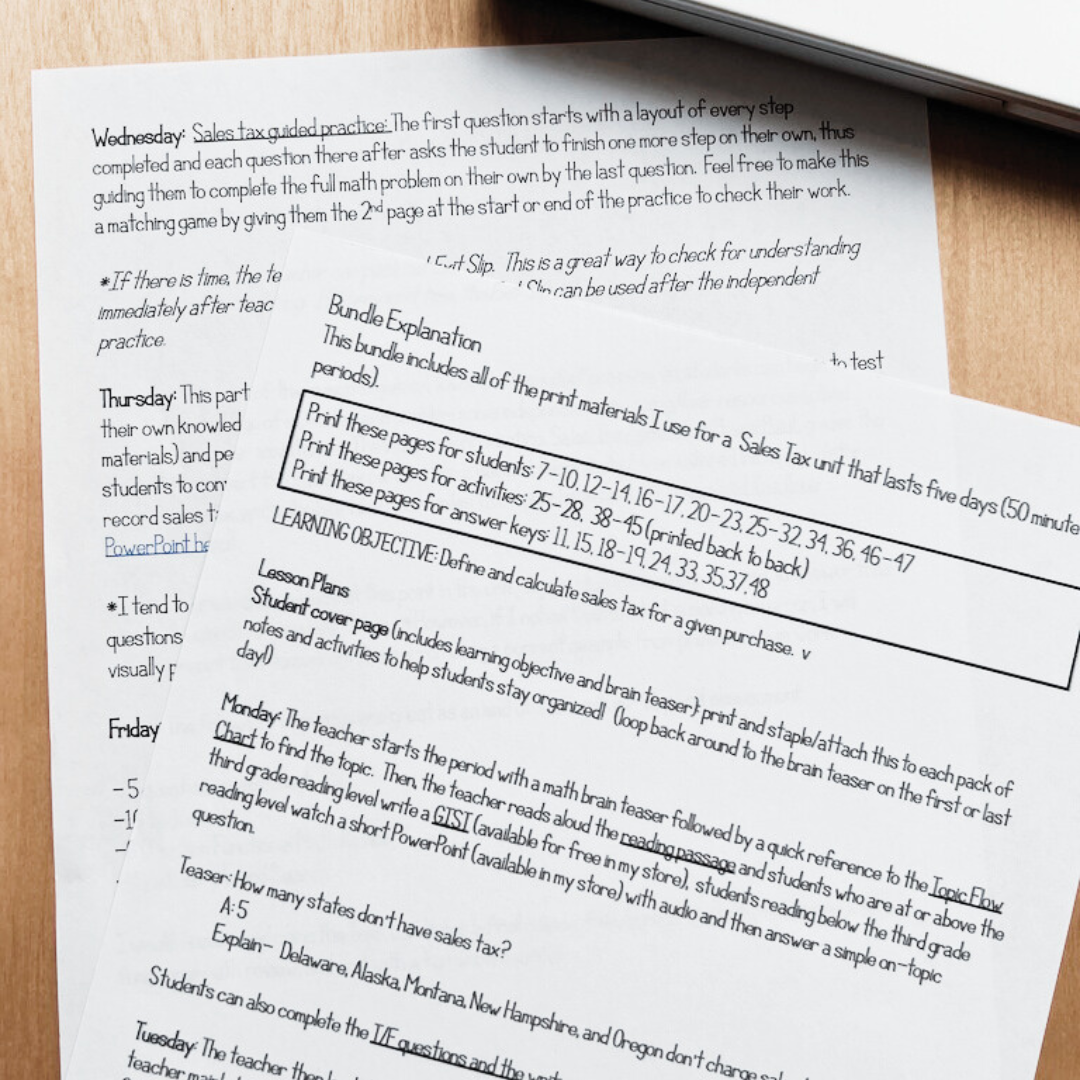 Wednesday: Sales tax guided practice: The first question starts with a layout of every step
completed and each question there after asks the student to finish one more step on their own, thus
guiding them to complete the full math problem on their own by the last question. Feel free to make this
a matching game by giving them the 2nd page at the start or end of the practice to check their work.
*If there is time, the te
Exit Slip. This is a great way to check for understanding
immediately after teac
Slip can be used after the independent
practice.
to test
Thursday: This part
their own knowled
materials) and pe
students to con
record sales t
PowerPoint he
*I tend to
questions
visually p
Friday
-5
-10
Bundle Explanation
This bundle includes all of the print materials I use for a Sales Tax unit that lasts five days (50 minute
periods).
Print these pages for students: 7-10, 12-14, 16-17, 20-23, 25-32, 34, 36, 46-47
Print these pages for activities: 25-28, 38-45 (printed back to back)
Print these pages for answer keys: 11, 15, 18-19, 24, 33, 35, 37, 48
LEARNING OBJECTIVE: Define and calculate sales tax for a given purchase. v
Lesson Plans
Student cover page (includes learning objective and brain teaser): print and staple/attach this to each pack of
notes and activities to help students stay organized! (loop back around to the brain teaser on the first or last
day!)
Monday: The teacher starts the period with a math brain teaser followed by a quick reference to the Topic Flow
Chart to find the topic. Then, the teacher reads aloud the reading passage and students who are at or above the
third grade reading level write a GIST (available for free in my store), students reading below the third grade
reading level watch a short PowerPoint (available in my store) with audio and then answer a simple on-topic
question.
Teaser: How many states don't have sales tax?
A: 5
Explain- Delaware, Alaska, Montana, New Hampshire, and Oregon don't charge sal
Students can also complete the T/F questions and the
Tuesday: The teacher then
teacher